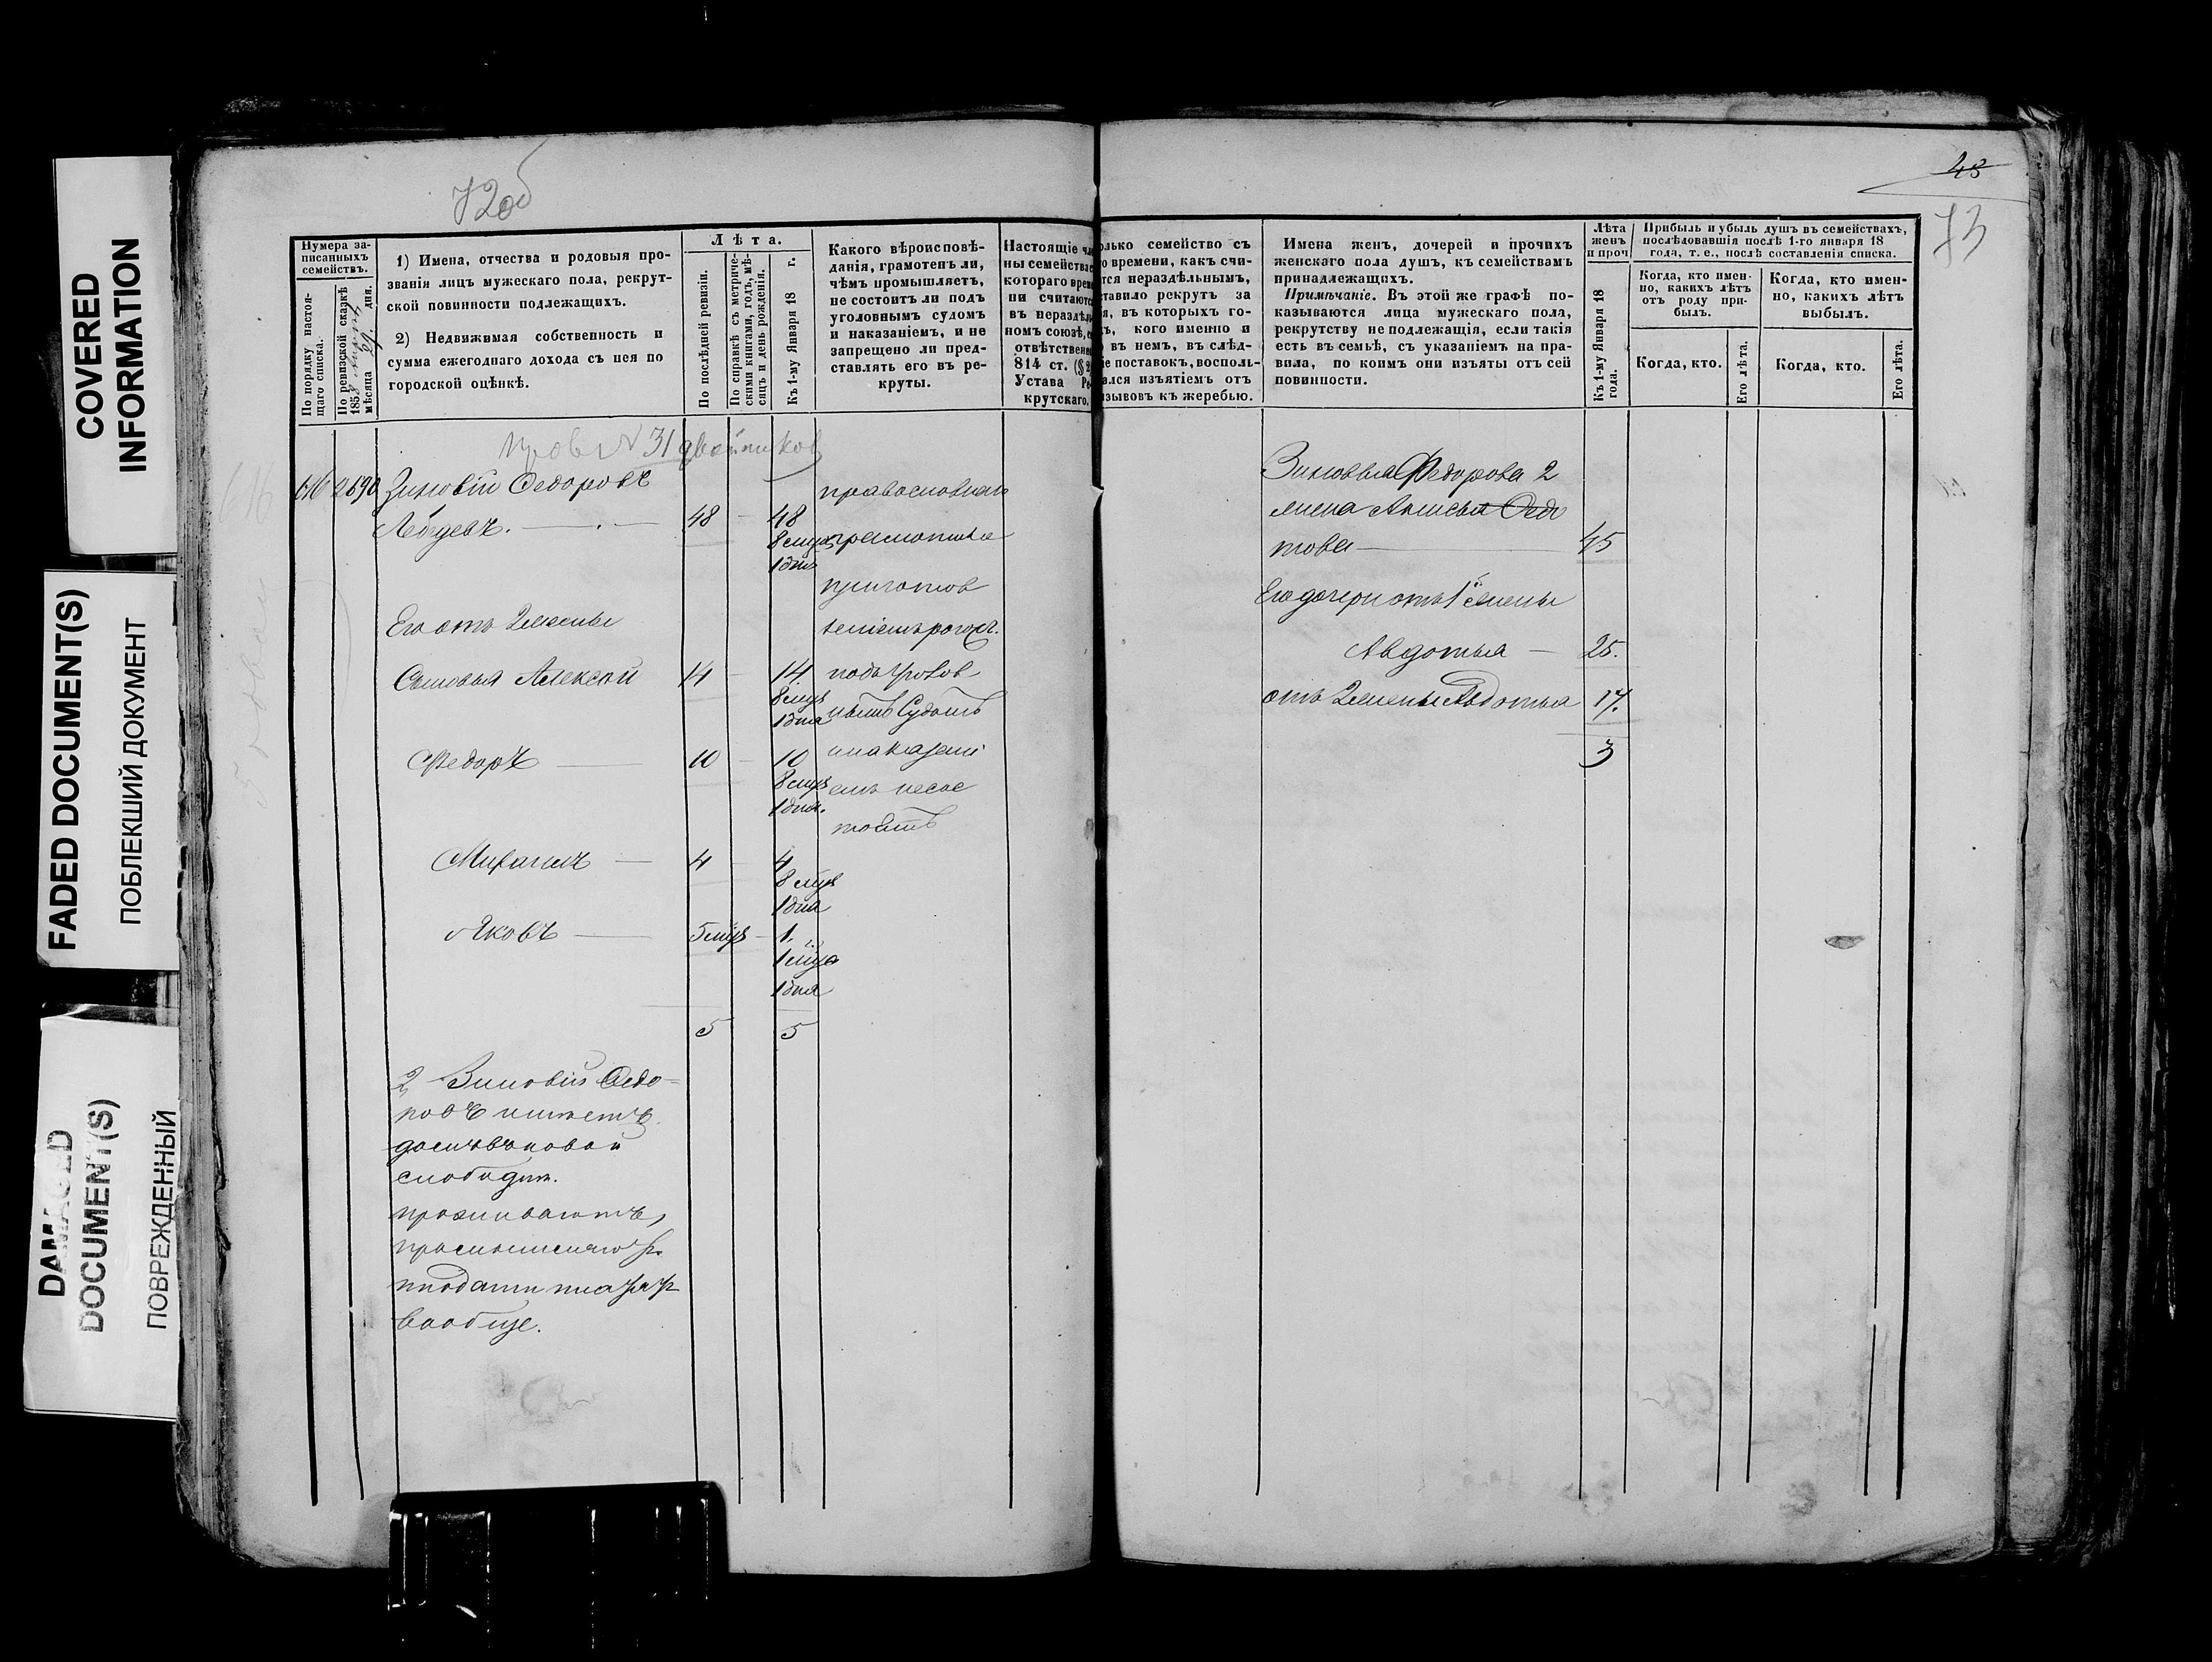 COVERED
INFORMATION
FADED DOCUMENT(S)
ПОБЛЕКШИЙ ДОКУМЕНТ
DAMAGED
DOCUMENT(S)
ПОВРЕЖДЕННЫЙ
72об
Нумера за-
писанныхъ
семействъ.
По порядку настоя-
щаго списка.
По ревизской сказкѣ
185
мѣсяца 29. дня.
1) Имена, отчества и родовыя про-
званія лицъ мужескаго пола, рекрут-
ской повинности подлежащихъ.
2) Недвижимая собственность и
сумма ежегоднаго дохода съ нея по
городской оцѣнкѣ.
Лѣта.
По послѣдней ревизіи.
По справкѣ съ метриче-
скими книгами, годъ, мѣ-
сяцъ и день рожденія.
Къ 1-му Января 18 г.
Какого вѣроисповѣ-
данія, грамотенъ ли,
чѣмъ промышляетъ,
не состоитъ ли подъ
уголовнымъ судомъ
и наказаніемъ, и не
запрещено ли пред-
ставлять его въ ре-
круты.
Настоящіе
ны семейства
котораго
ни считаются
въ нераздѣль
номъ союзѣ,
отвѣтственн
814 ст. (§
Устава Ре
крутскаго,
№ 31 двойников
616 2690 Зиновій Ѳедоровъ
Лебедевъ. 48 48
8 мцъ
1 дня
православнаго
Его отъ 2 жены
Сыновья Алексѣй 14 14.
8 мцъ
1 дня
подъ уголов
нымъ Судомъ
Ѳедоръ 10 10
8 мцъ
1 дня.
инаказані
емъ несос
тоитъ
Михаилъ 4 4
8 мцъ
1 дня
Яковъ 5 мцъ 1.
1 мцъ
1 дня
5 5
2, Зиновій Ѳедо-
ровъ имѣетъ
домъ въ новой
слободѣ.
проживаютъ,
вообще.
48
73
олько семейство съ
о времени, какъ счи-
тся нераздѣльнымъ,
ставило рекрутъ за
я, въ которыхъ го-
ъ, кого именно и
въ немъ, въ слѣд-
е поставокъ, восполь-
ался изъятіемъ отъ
ызывовъ къ жеребью.
Имена женъ, дочерей и прочихъ
женскаго пола душъ, къ семействамъ
принадлежащихъ.
Примѣчаніе. Въ этой же графѣ по-
казываются лица мужескаго пола,
рекрутству не подлежащія, если такія
есть въ семьѣ, съ указаніемъ на пра-
вила, по коимъ они изъяты отъ сей
повинности.
Лѣта
женъ
и проч
Къ 1-му Января 18
года.
Прибыль и убыль душъ въ семействахъ,
послѣдовавшія послѣ 1-го января 18
года, т. е., послѣ составленія списка.
Когда, кто имен-
но, какихъ лѣтъ
отъ роду при-
былъ.
Когда, кто имен-
но, какихъ лѣтъ
выбылъ.
Когда, кто.
Его лѣта.
Когда, кто.
Его лѣта.
Зиновья Федорова 2
това 45
Его дочери отъ 1й жены
Авдотья 25.
отъ 2 жены Авдотья 17.
3